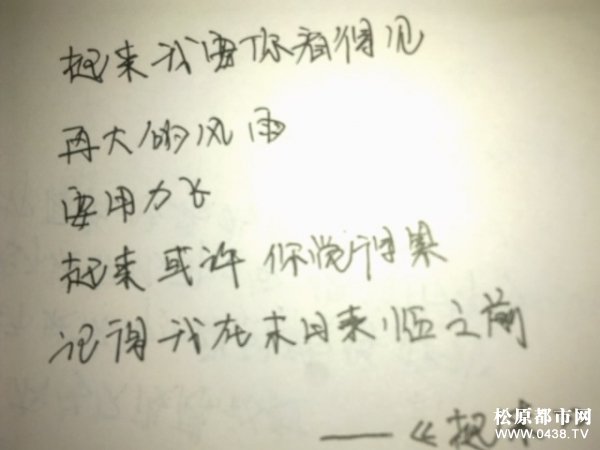 起来我要你看得见
再大的风雨
要用力飞
起来或许你觉得累
记得我在末日来临之前
——《起来
松原都市网
WWW.0438.TV